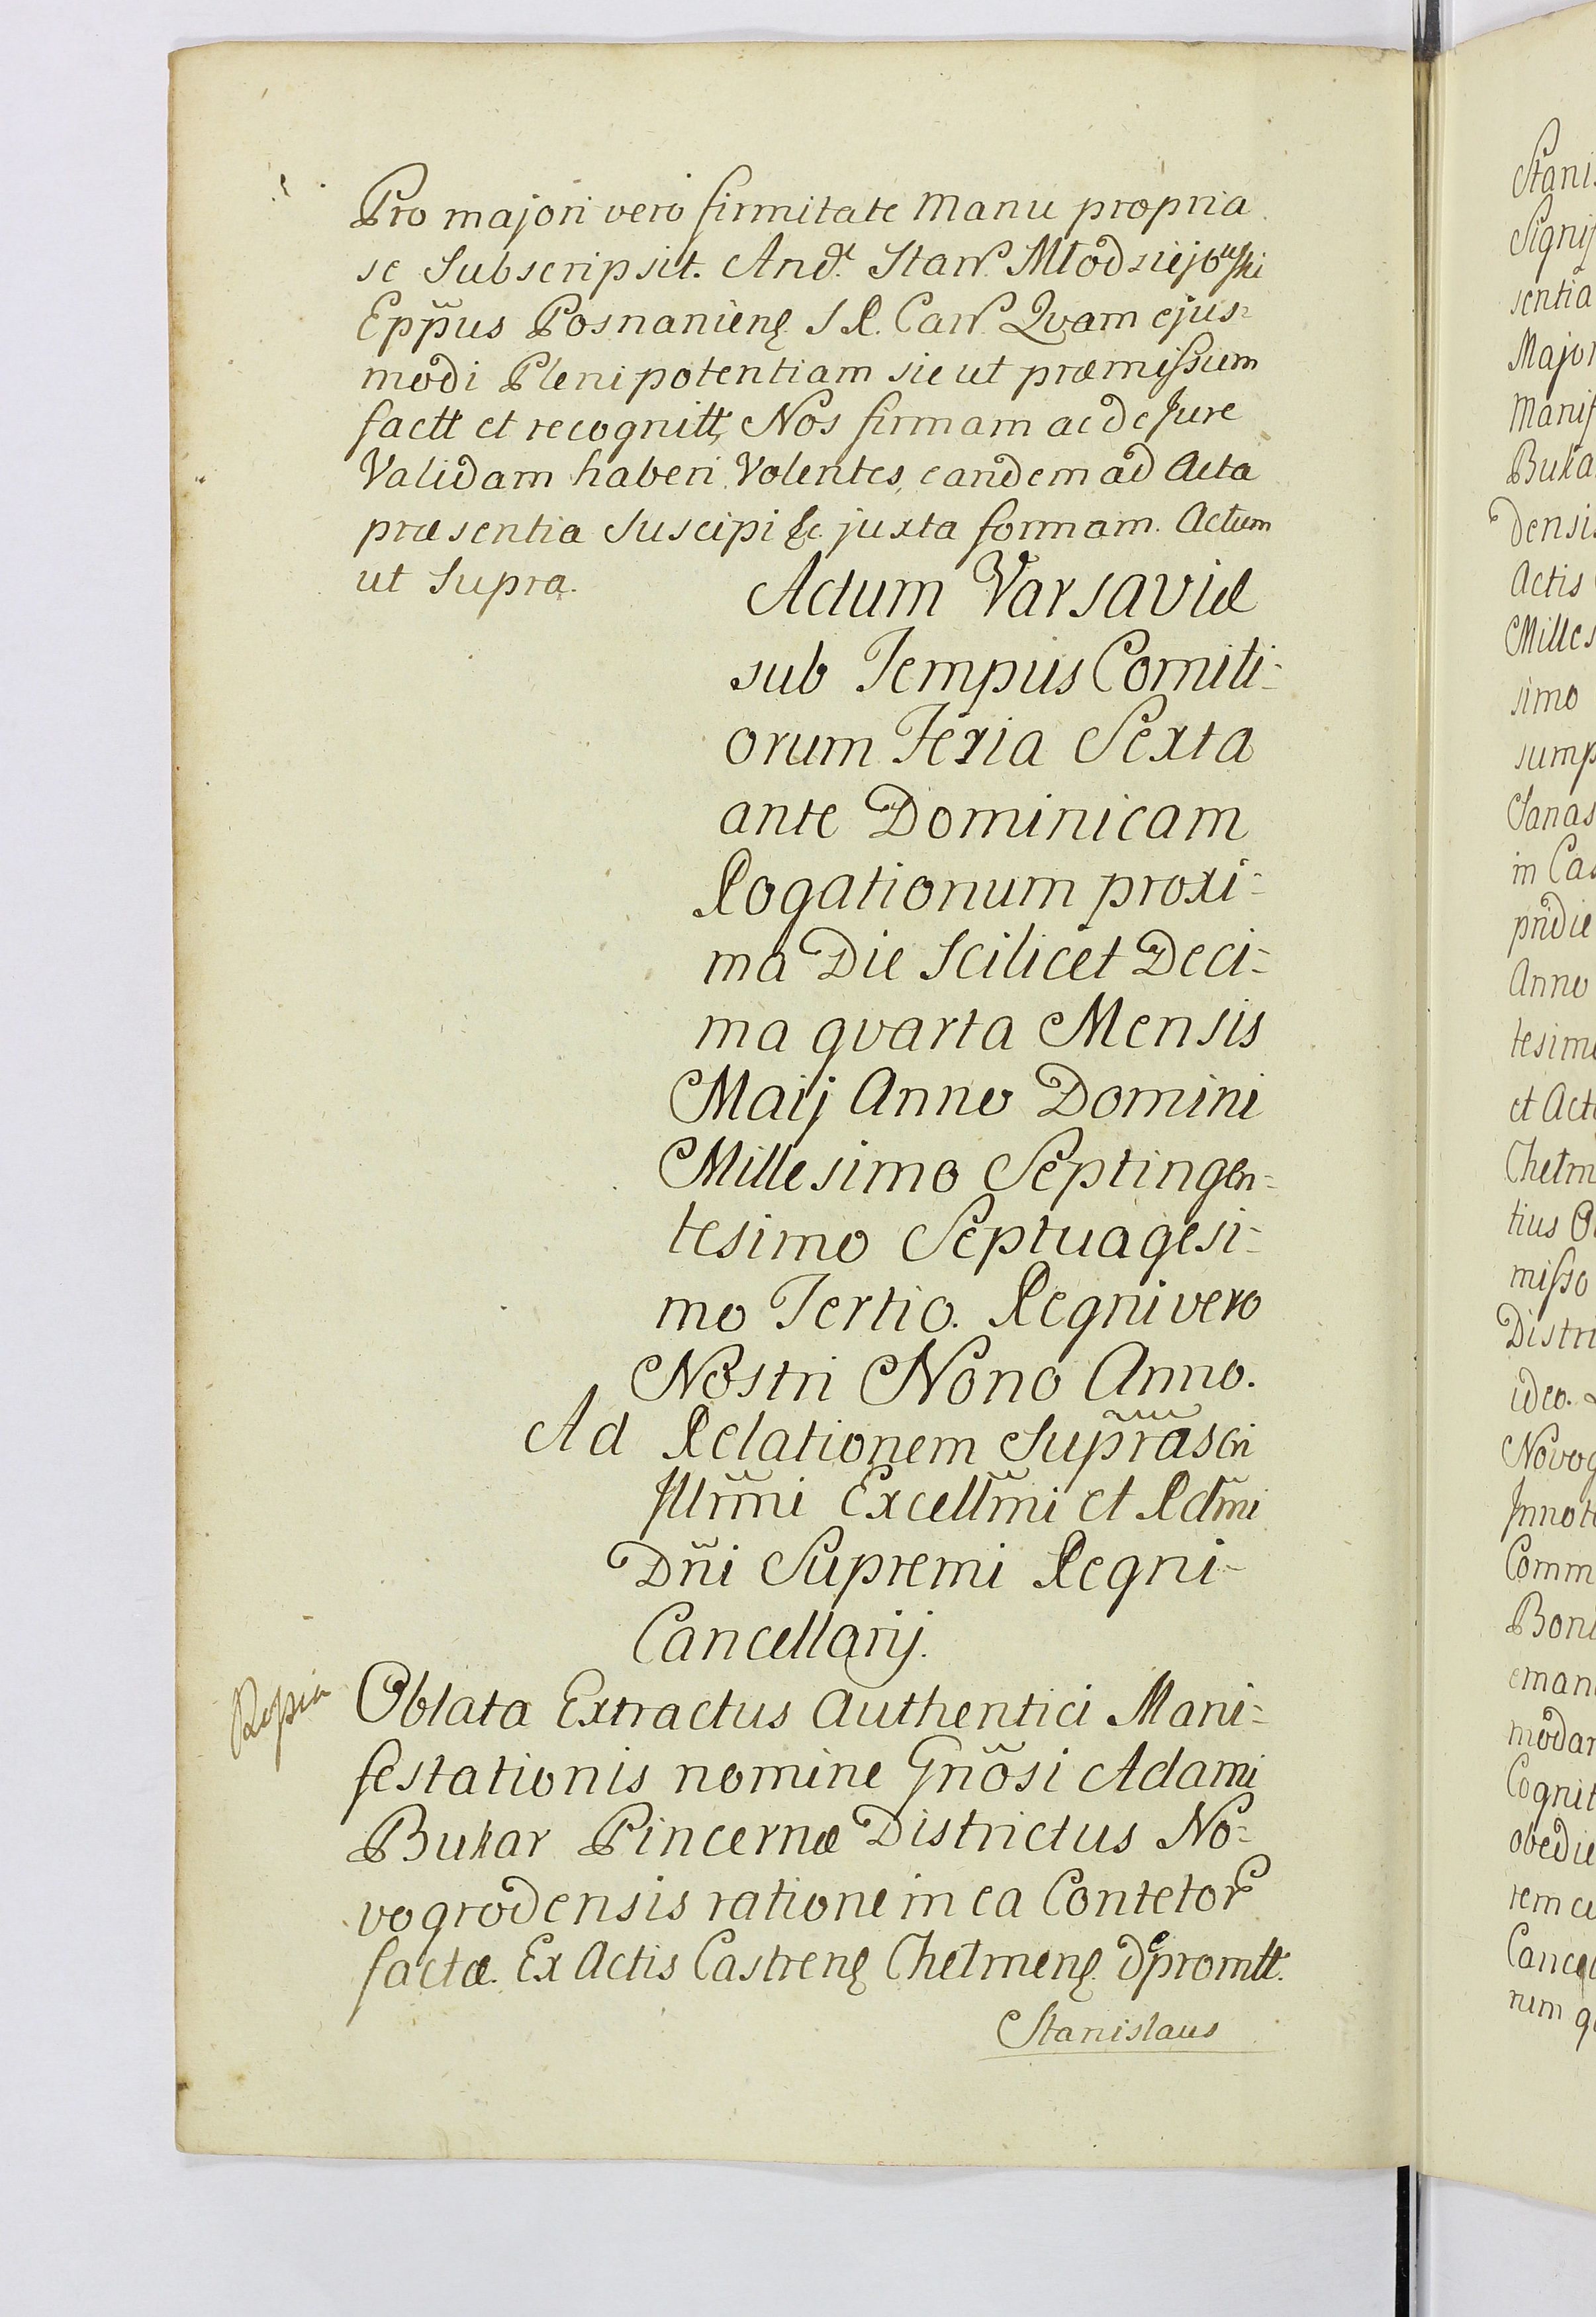 Pro majori vero firmitate Manu propria
se Subscripsit. And. Stan. Młodziejowski
Epp̃us Posnanieñ. S R. Can. Qvam ejus=
modi Plenipotentiam sic ut præmissum
factt et recognitt, Nos firmam ac de Jure
Validam haberi Volentes, eandem ad Acta
præsentia Suscipi &c. juxta formam. Actum
ut Supra.
Actum Varsaviæ
sub Tempus Comiti=
orum Feria Sexta
ante Dominicam
Rogationum proxi=
ma Die Scilicet Deci=
ma qvarta Mensis
Maij Anno Domini
Millesimo Septingen=
tesimo Septuagesi=
mo Tertio. Regni vero
Nostri Nono Anno.
Ad Relationem Supr̃ascri
Illm̃i Excellm̃i et Rdm̃i
Dñi Supremi Regni
Cancellarij.
Oblata Extractus Authentici Mani=
festationis nomine Gñosi Adami
Bukar Pincernæ Districtus No=
vogrodensis ratione in ea Contetor
factæ. Ex Actis Castreñ Chełmeñ. depromtt.
Stanislaus
Stanis
Signif
sentia
Major
Manif
Buka
densis
Actis
Milles
simo
sump
Sanas
in Cas
pridie
Anno
tesimo
et Act
Chełm
tius
misso
Distri
ideo.
Novog
Innot
Comm
Boni
eman
modar
Cognit
obedie
rem
Cance
rum